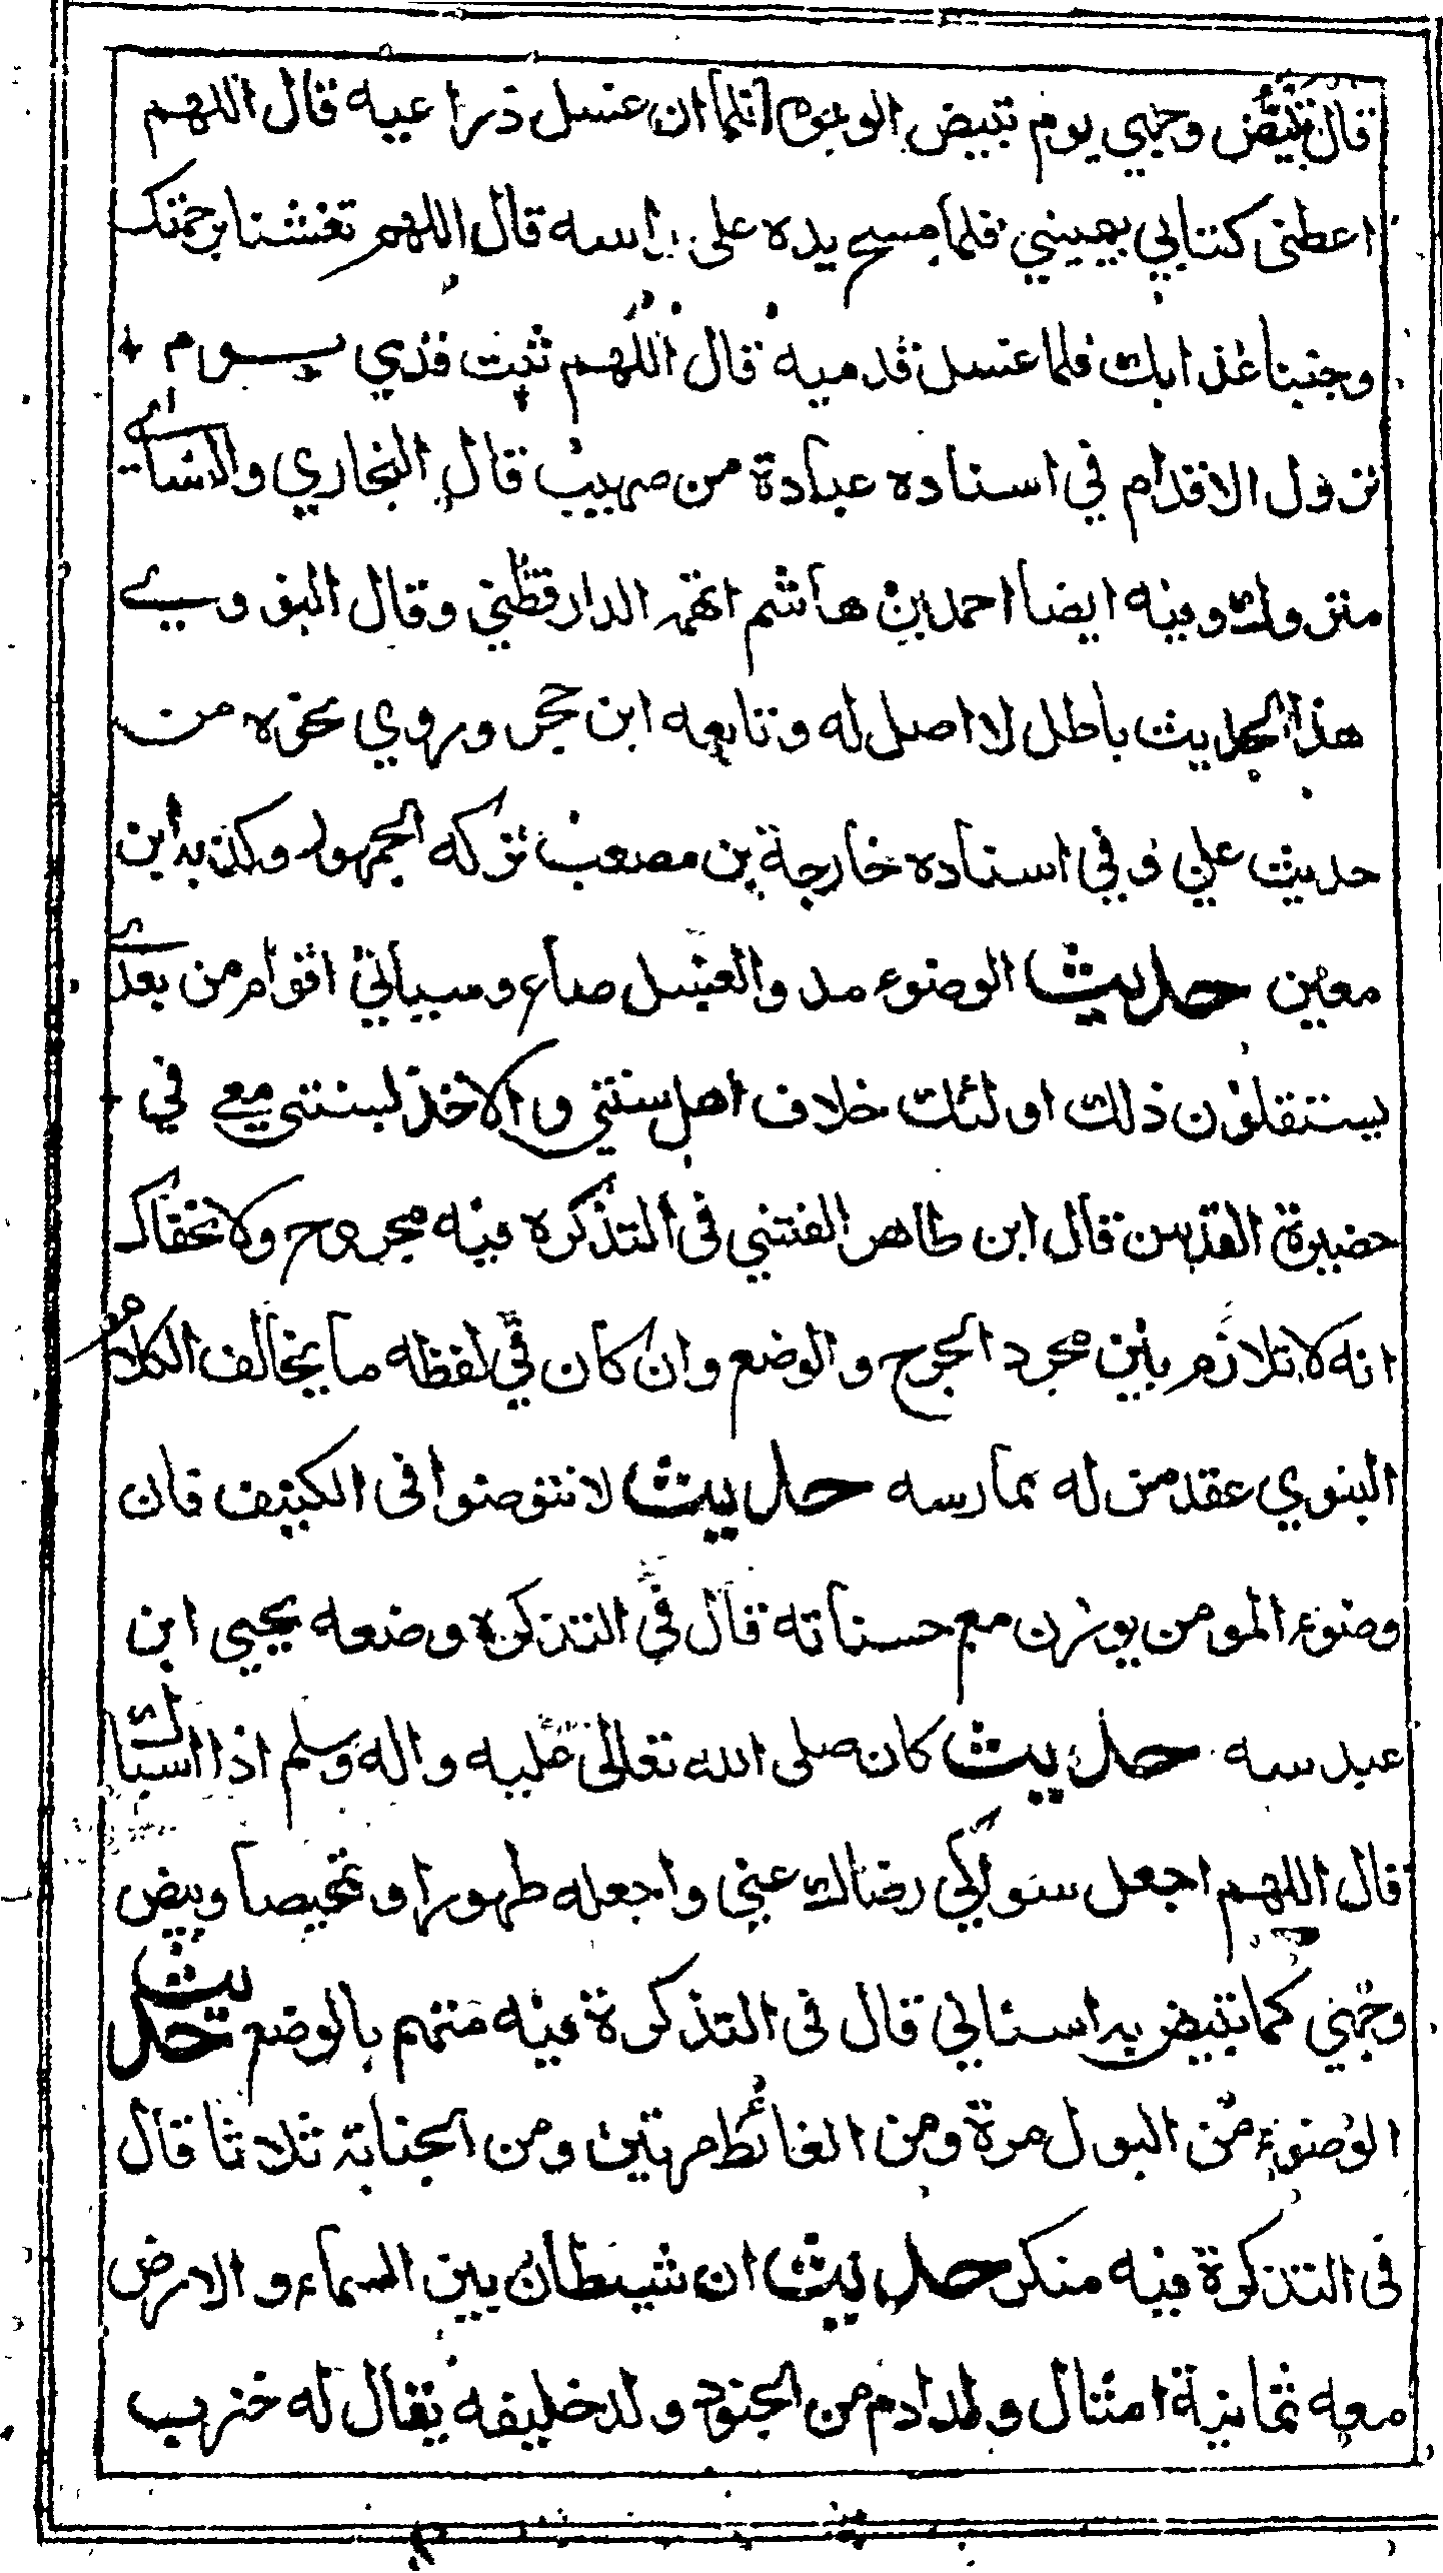 قال بيض وجهي يوم تبيض الوجوه فلما ان غسل ذراعيه قال اللهم
اعطني كتابي بيميني فلما مسح يده على راسه قال اللهم تغشنا برحمتك
وجنبنا عذابك فلما غسل قدميه قال اللهم ثبت قدمي يوم
تزول الاقدام في اسناده عبادة من صهيب قال البخاري والنسائي
متروك وفيه ايضا احمد بن هاشم اتهمه الدارقطني وقال النووي
هذا الحديث باطل لا اصل له وتابعه ابن حجر وروي نحوه من
حديث علي وفي اسناده خارجة بن مصعب تركه الجمهور وكذبه ابن
معين حديث الوضوء مد والغسل صاع وسياتي اقوام من بعدي
يستقلون ذلك اولئك خلاف اهل سنتي والاخذ لسنتي معي في
حضيرة القدس قال ابن طاهر الفتني في التذكرة فيه مجروح ولا يخفاك
انه لا تلازم بين مجرد الجرح والوضع وان كان في لفظه ما يخالف الكلام
النبوي عقد من له ممارسه حديث لا تتوضوا في الكنيف فان
وضوء المومن يوزن مع حسناته قال في التذكرة وضعه يحيي ابن
عبدسه حديث كان صلى الله تعالى عليه واله وسلم اذا استاك
قال اللهم اجعل سواكي رضاك عني واجعله طهورا وتمحيصا وبيض
وجهي كما تبيض به اسناني قال في التذكرة فيه متهم بالوضع حديث
الوضوء من البول مرة ومن الغائط مرتين ومن الجنابة ثلاثا قال
في التذكرة فيه منكر حديث ان شيطان بين السماء والارض
معه ثمانية امثال ولد ادم من الجنود وله خليفه يقال له خنزب